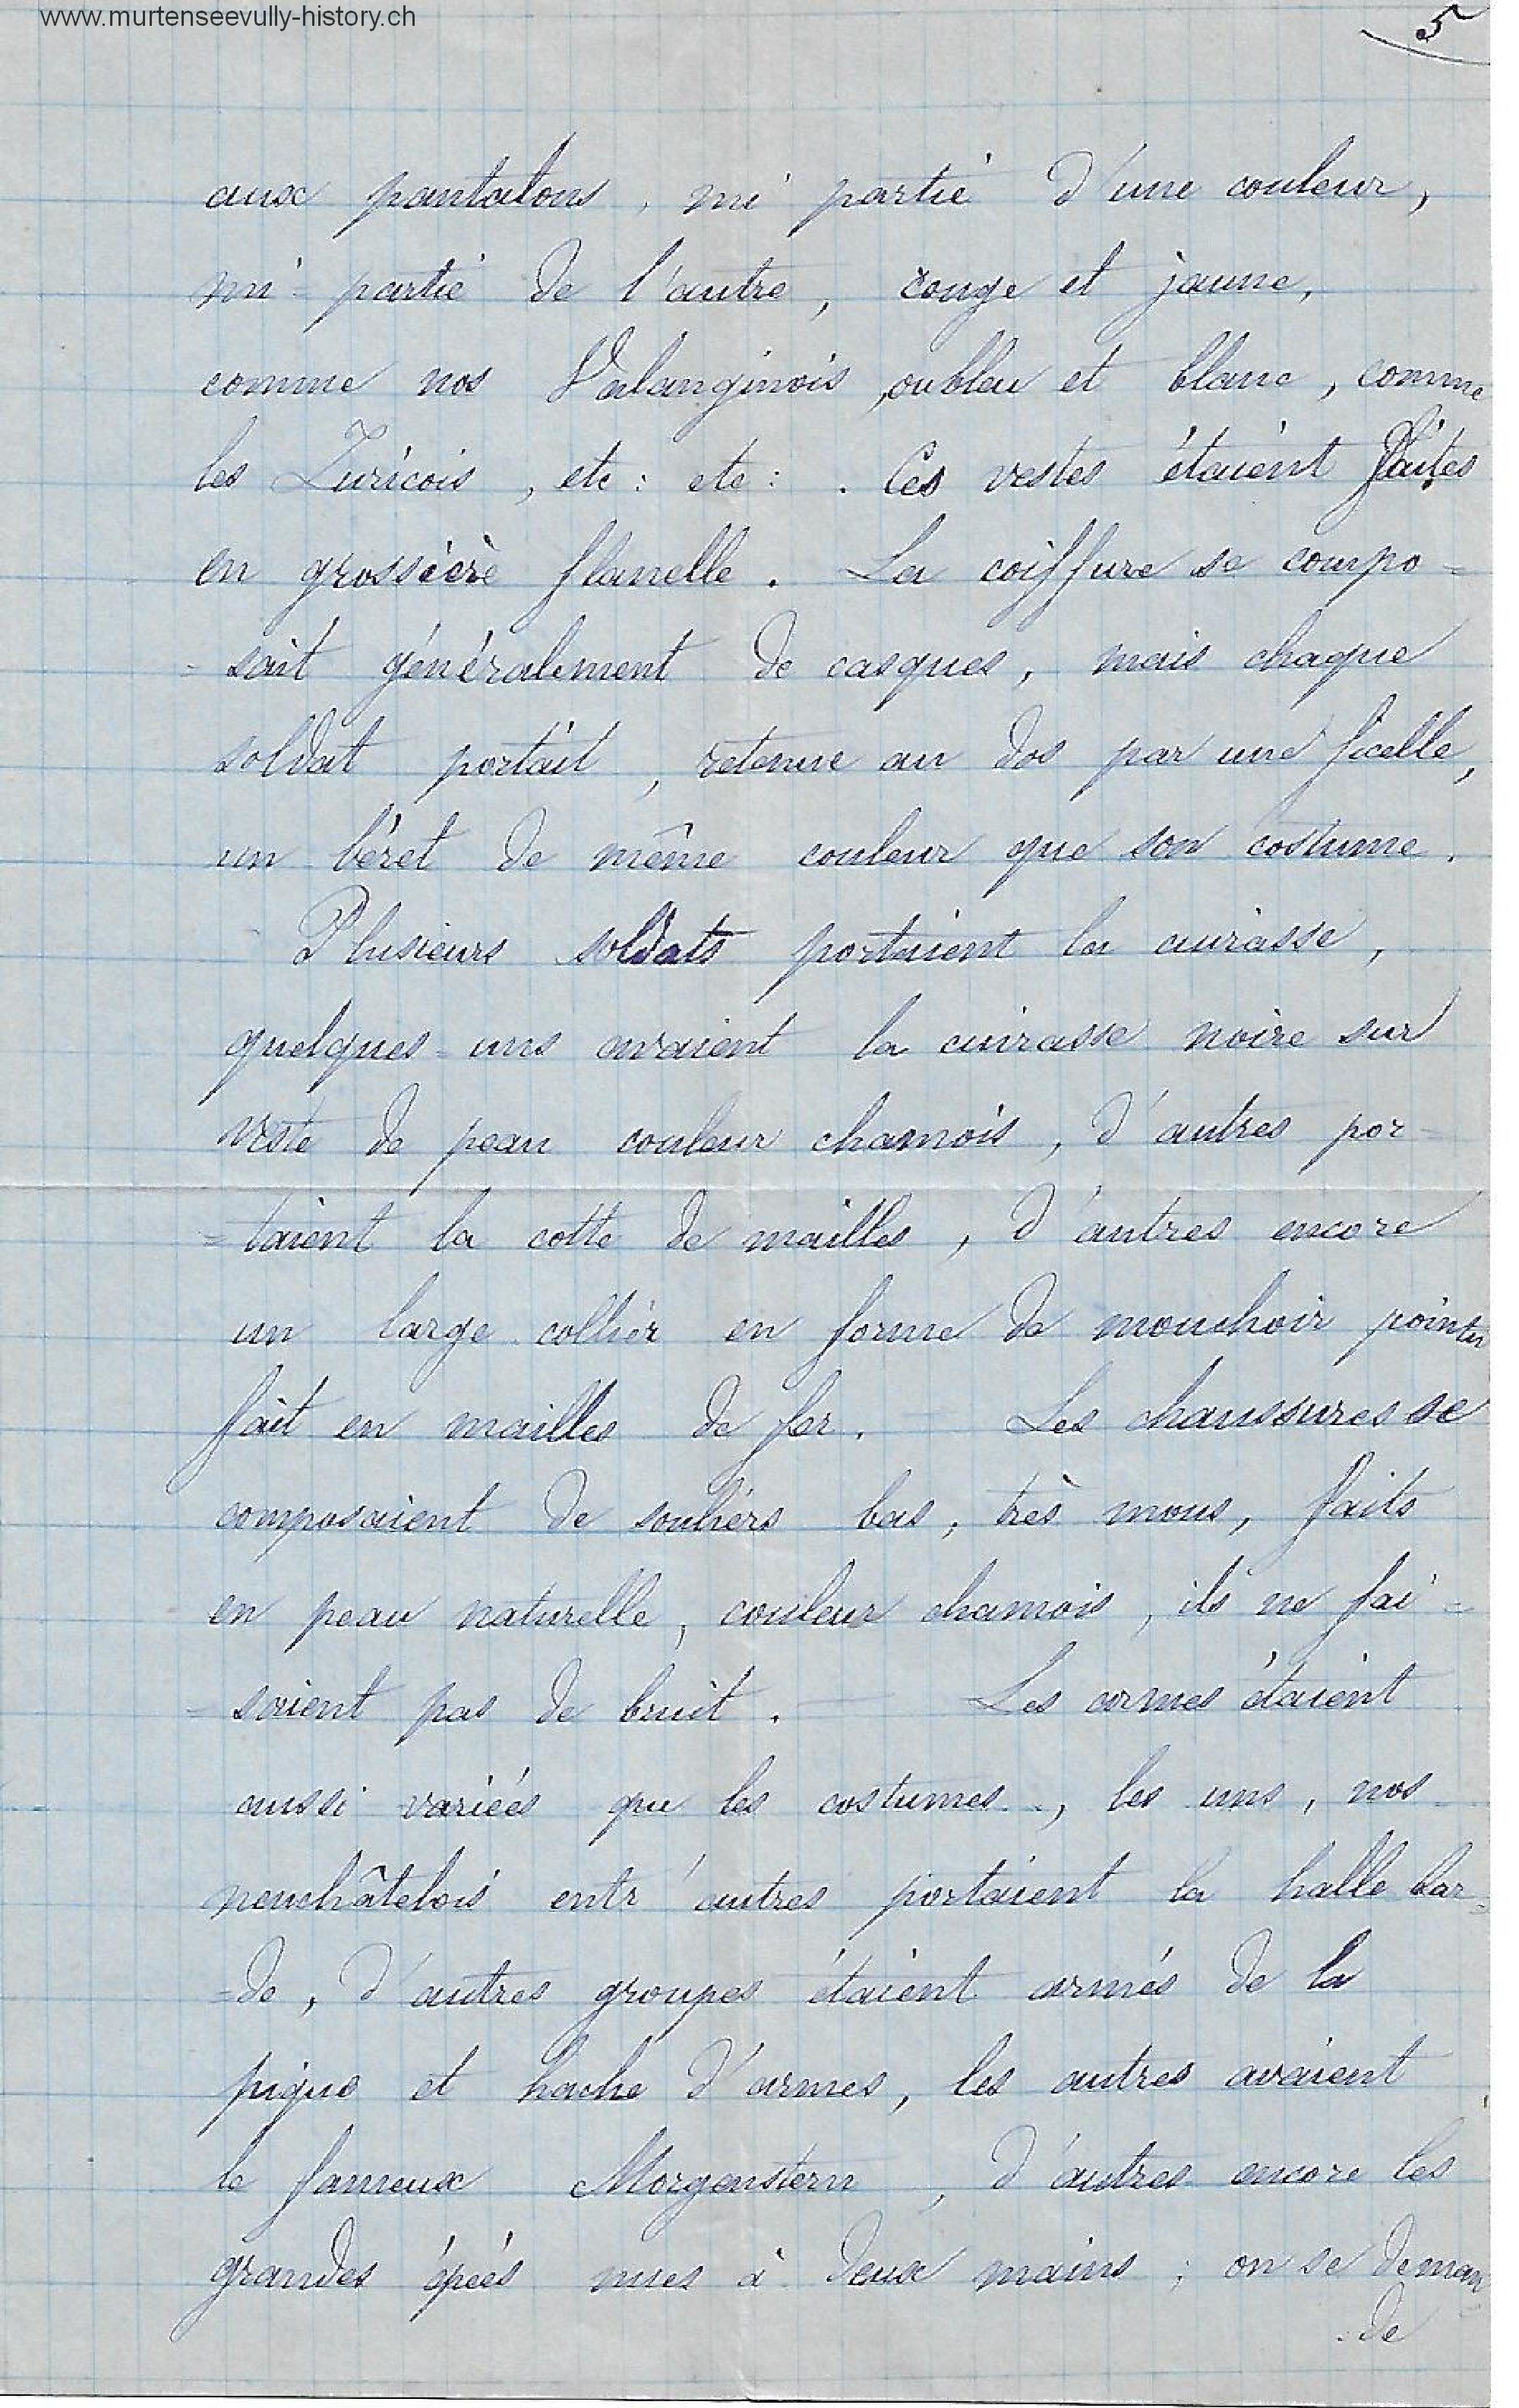 www.murtenseevully-history.ch
5
aux pantalons, mi partie d'une couleur,
mi-partie de l'autre, rouge et jaune,
comme nos Valanginois, ou bleu et blanc, comme
les Zuricois, etc: etc: . Ces vestes étaient faites
en grossière flanelle. La coiffure se compo=
=sait généralement de casques, mais chaque
soldat portait, retenue au dos par une ficelle,
un béret de même couleur que son costume.
Plusieurs soldats portaient la cuirasse,
quelques-uns avaient la cuirasse noire sur
veste de peau couleur chamois, d'autres por-
=taient la cotte de mailles, d'autres encore
un large collier en forme de mouchoir pointu
fait en mailles de fer. Les chaussures se
composaient de souliers bas, très mous, faits
en peau naturelle, couleur chamois, ils ne fai=
=saient pas de bruit. — Les armes étaient
aussi variées que les costumes, les uns, nos
neuchâtelois entr'autres portaient la halle bar=
=de, d'autres groupes étaient armés de la
pique et hache d'armes, les autres avaient
le fameux Morgenstern, d'autres encore les
grandes épées nues à deux mains; on se deman=
=de